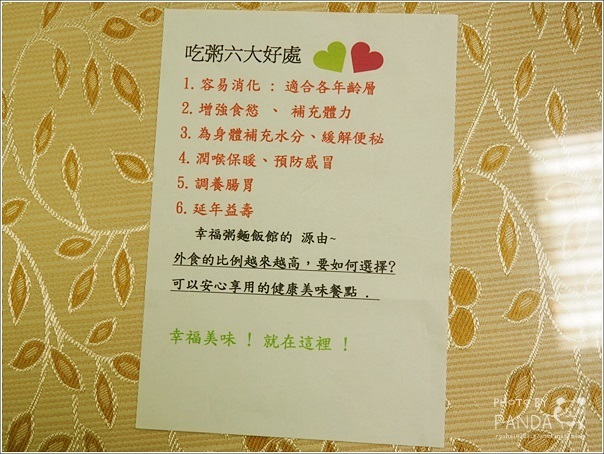 吃粥六大好處
1. 容易消化 : 適合各年齡層
2. 增強食慾 、 補充體力
3. 為身體補充水分、緩解便秘
4. 潤喉保暖、預防感冒
5. 調養腸胃
6. 延年益壽
幸福粥麵飯館的 源由~
外食的比例越來越高，要如何選擇?
可以安心享用的健康美味餐點 .
幸福美味 ! 就在這裡 !
PHOTO BY
PANDA